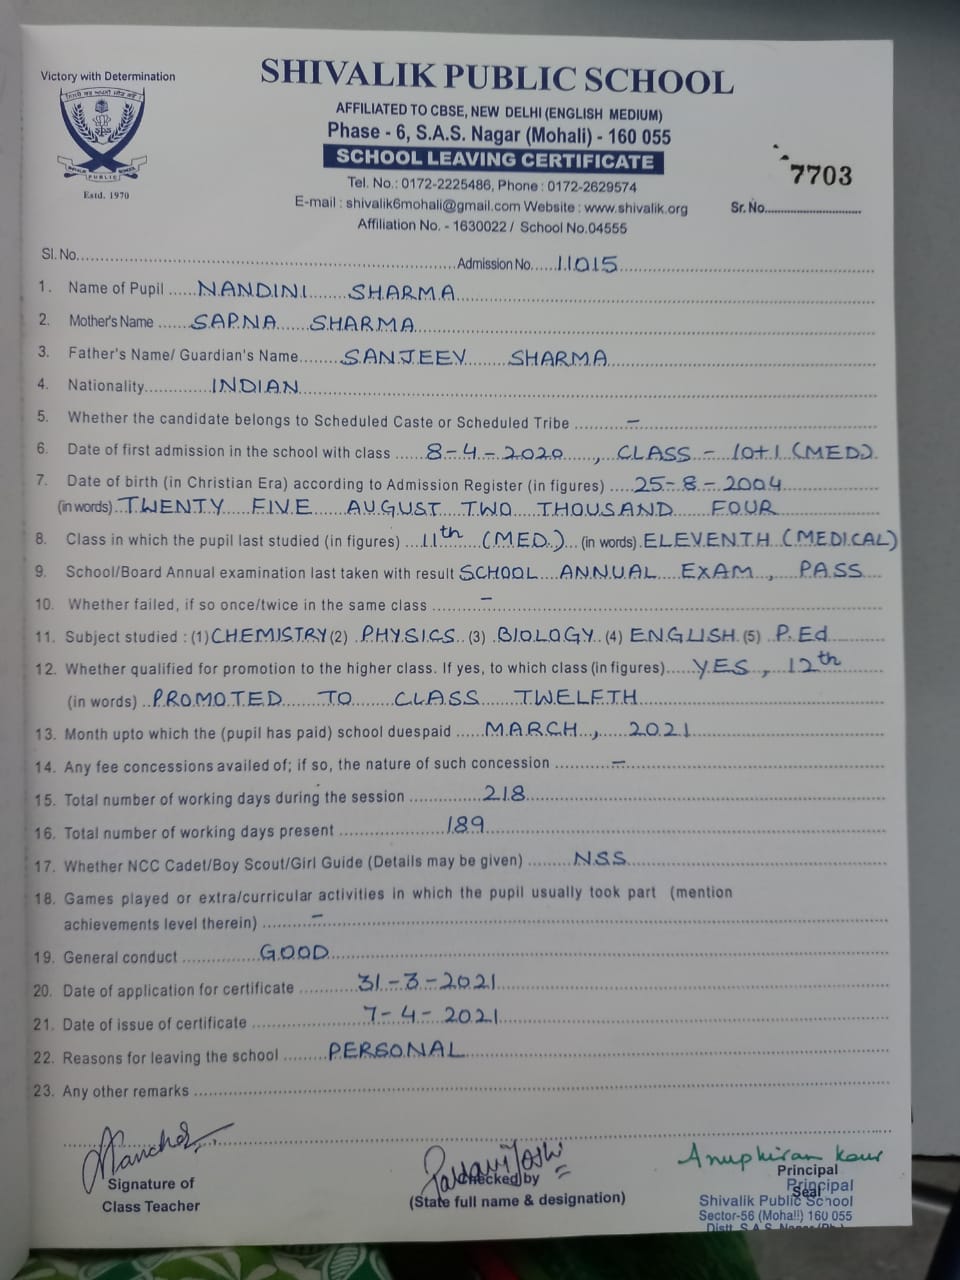 Victory with Determination
SHIVALIK PUBLIC SCHOOL
AFFILIATED TO CBSE, NEW DELHI (ENGLISH MEDIUM)
Phase - 6, S.A.S. Nagar (Mohali) - 160 055
SCHOOL LEAVING CERTIFICATE
Tel. No.: 0172-2225486, Phone : 0172-2629574
E-mail : shivalik6mohali@gmail.com Website : www.shivalik.org
Affiliation No. - 1630022 / School No.04555
SPS
SHIVALIK PUBLIC SCHOOL
Estd. 1970
7703
Sr. No.
Sl. No. Admission No. 11015
1. Name of Pupil NANDINI SHARMA
2. Mother's Name SAPNA SHARMA
3. Father's Name/ Guardian's Name SANJEEV SHARMA
4. Nationality INDIAN
5. Whether the candidate belongs to Scheduled Caste or Scheduled Tribe –
6. Date of first admission in the school with class 8-4-2020, CLASS - 10+1 (MED.)
7. Date of birth (in Christian Era) according to Admission Register (in figures) 25-8-2004
(in words) TWENTY FIVE AUGUST TWO THOUSAND FOUR
8. Class in which the pupil last studied (in figures) 11th (MED.) (in words) ELEVENTH (MEDICAL)
9. School/Board Annual examination last taken with result SCHOOL ANNUAL EXAM, PASS
10. Whether failed, if so once/twice in the same class –
11. Subject studied : (1) CHEMISTRY (2) PHYSICS (3) BIOLOGY (4) ENGLISH (5) P.Ed
12. Whether qualified for promotion to the higher class. If yes, to which class (in figures) YES, 12th
(in words) PROMOTED TO CLASS TWELFTH
13. Month upto which the (pupil has paid) school duespaid MARCH, 2021
14. Any fee concessions availed of; if so, the nature of such concession –
15. Total number of working days during the session 218
16. Total number of working days present 189
17. Whether NCC Cadet/Boy Scout/Girl Guide (Details may be given) NSS
18. Games played or extra/curricular activities in which the pupil usually took part (mention
achievements level therein) –
19. General conduct GOOD
20. Date of application for certificate 31-3-2021
21. Date of issue of certificate 7-4-2021
22. Reasons for leaving the school PERSONAL
23. Any other remarks
Anupkiran Kaur
Signature of
Class Teacher
Checked by
(State full name & designation)
Principal
Seal
Principal
Shivalik Public School
Sector-56 (Mohali) 160 055